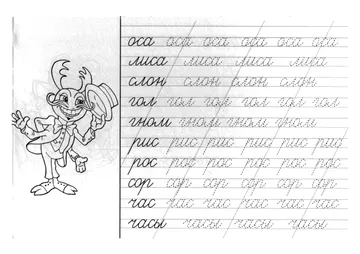 оса оса оса оса оса оса
лиса лиса лиса лиса
слон слон слон слон
гол гол гол гол гол гол
гном гном гном гном
рис рис рис рис рис рис
рос рос рос рос рос рос
сор сор сор сор сор сор
час час час час час час
часы часы часы часы